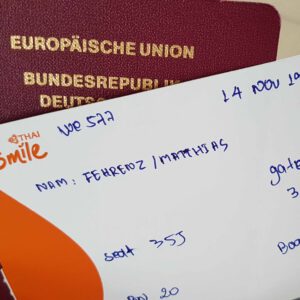 EUROPÄISCHE UNION
BUNDESREPUBLIK
DEUTSC
THAI
Smile
WE 577
14 NOV 19
NAM : FEHRENZ / MATTHIAS
gate
3
Seat 35J
Boa
20